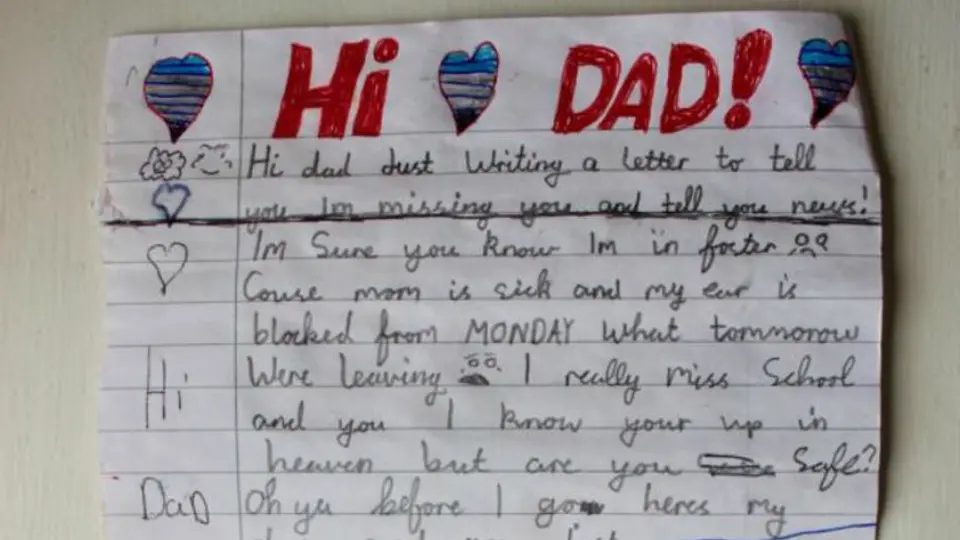 Hi DAD!
Hi dad Just Writing a letter to tell
you Im missing you and tell you news!
Im Sure you know Im in foster
Couse mom is sick and my ear is
blocked from MONDAY What tommorow
Were leaving I really miss School
Hi
and you I know your up in
heaven but are you Safe?
Dad Oh ya before I go heres my